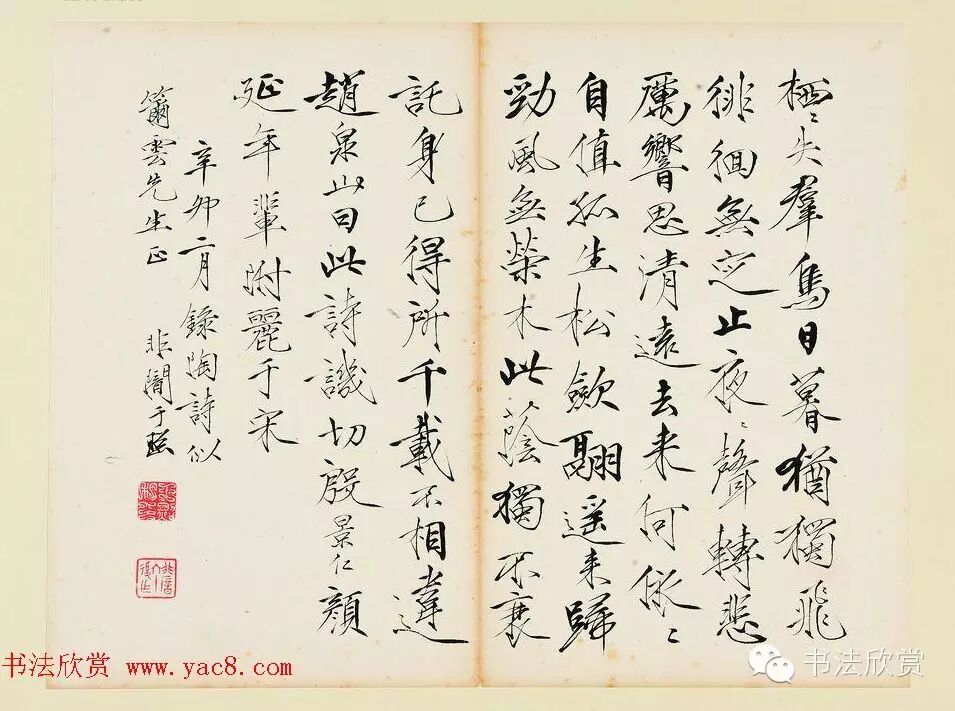 栖〻失羣鳥日暮猶獨飛
徘徊無定止夜〻聲轉悲
厲響思清遠去来何依〻
自值孤生松歛翮遥来歸
勁風無榮木此蔭獨不衰
託身已得所千載不相違
趙泉山曰此詩譏切殷景仁顔
延年輩附麗于宋
辛卯二月錄陶詩似
雲先生正 非闇于照
书法欣赏 www.yac8.com
书法欣赏